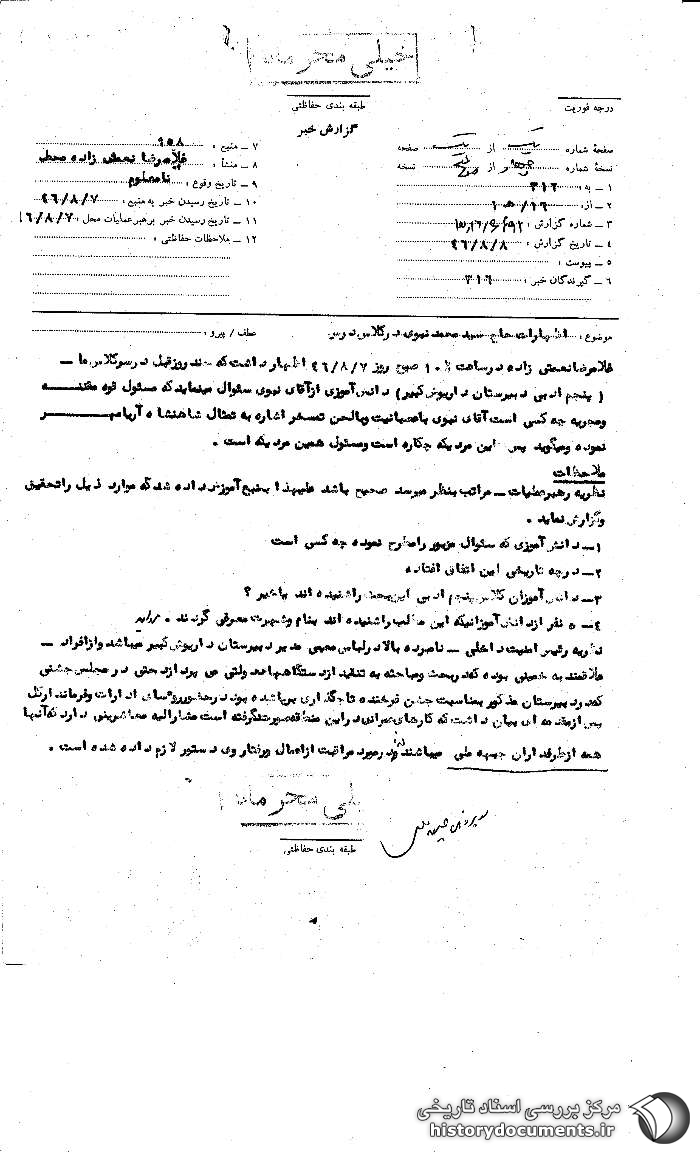 خیلی محرمانه
طبقه بندی حفاظتی
گزارش خبر
درجه فوریت
صفحه شماره یک از یک صفحه
نسخه شماره از نسخه
۱ ــ به : ۳۱۶
۲ ــ از :
۳ ــ شماره گزارش :
۴ ــ تاریخ گزارش : ۴۶/۸/۸
۵ ــ پیوست :
۶ ــ گیرندگان خبر : ۳۱۶
۷ ــ منبع : ۹۰۸
۸ ــ منشأ : غلامرضا نعمتی زاده محصل
۹ ــ تاریخ وقوع : نامعلوم
۱۰ ــ تاریخ رسیدن خبر به منبع : ۴۶/۸/۷
۱۱ ــ تاریخ رسیدن خبر برهبر عملیات محل : ۴۶/۸/۷
۱۲ ــ ملاحظات حفاظتی :
موضوع : اظهارات حاج سید محمد نبوی در کلاس درس عطف / پیرو :
غلامرضا نعمتی زاده در ساعت ۱۰ صبح روز ۴۶/۸/۷ اظهار داشت که چند روز قبل در سر کلاس ما ــ
( پنجم ادبی دبیرستان داریوش کبیر ) دانش آموزی از آقای نبوی سئوال مینماید که مسئول قوه مقننه
ومجریه چه کسی است آقای نبوی با عصبانیت وبا لحن تمسخر اشاره به تمثال شاهنشاه آریامهر
نموده ومیگوید پس این مردیکه چکاره است ومسئول همین مردیکه است .
ملاحظات
نظریه رهبر عملیات ــ مراتب بنظر میرسد صحیح باشد علیهذا بمنبع آموزش داده شد که موارد ذیل را تحقیق
وگزارش نماید .
۱ــ دانش آموزی که سئوال مزبور را مطرح نموده چه کسی است
۲ــ در چه تاریخی این اتفاق افتاده
۳ــ دانش آموزان کلاس پنجم ادبی این بحث را شنیده اند یا خیر ؟
۴ــ ۵ نفر از دانش آموزانیکه این مطالب را شنیده اند بنام وشهرت معرفی گردند .
نظریه رئیس امنیت داخلی ــ نامبرده بالا در لباس معممی مدیر دبیرستان داریوش کبیر میباشد واز افراد ــ
علاقمند به خمینی بوده که در بحث ومباحثه به تنقید از دستگاههای دولتی می پردازد حتی در مجلس جشنی
که در دبیرستان مذکور بمناسبت جشن فرخنده تاجگذاری برپا شده بود در حضور روسای ادارات وفرماندار تل
پس از مقدمه ای بیان داشت که کارهای عمرانی در این منطقه صورت نگرفته است مشارالیه معاشرینی دارد که آنها
همه از طرفداران جبهه ملی میباشند ودر مورد مراقبت از اعمال ورفتار وی دستور لازم داده شده است .
خیلی محرمانه
طبقه بندی حفاظتی
مرکز بررسی اسناد تاریخی
historydocuments.ir